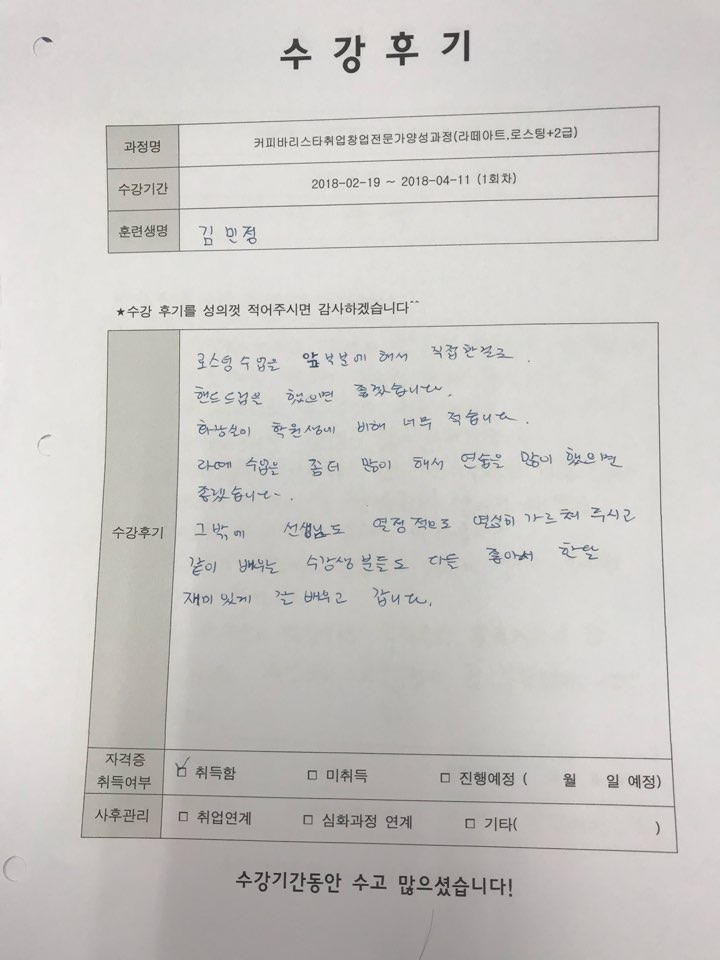 수강후기
과정명 커피바리스타취업창업전문가양성과정(라떼아트,로스팅+2급)
수강기간 2018-02-19 ~ 2018-04-11 (1회차)
훈련생명 김민정
★수강 후기를 성의껏 적어주시면 감사하겠습니다^^
수강후기
로스팅 수업은 앞부분에 해서 직접한걸로
핸드드립을 했으면 좋겠습니다.
화장실이 학원생에 비해 너무 적습니다.
라떼 수업을 좀더 많이 해서 연습을 많이 했으면
좋겠습니다.
그 밖에 선생님도 열정적으로 열심히 가르쳐 주시고
같이 배우는 수강생분들도 다들 좋아서 한달
재미있게 잘 배우고 갑니다.
자격증 취득여부 ☑ 취득함 □ 미취득 □ 진행예정 ( 월 일 예정)
사후관리 □ 취업연계 □ 심화과정 연계 □ 기타( )
수강기간동안 수고 많으셨습니다!